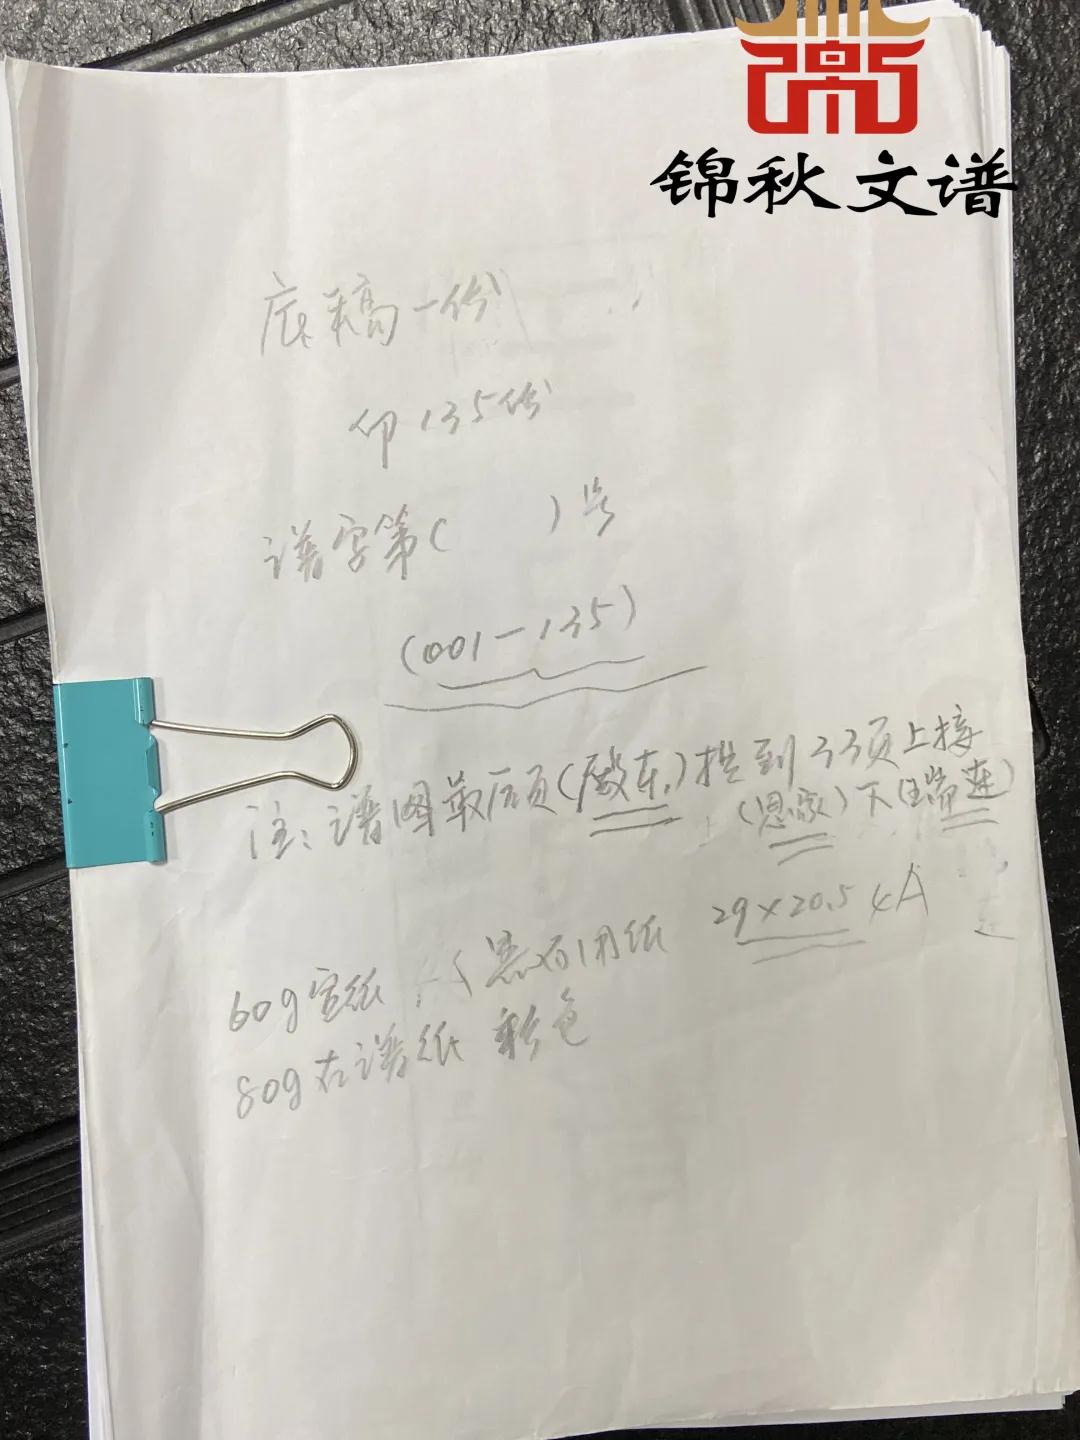 锦秋文谱
底稿一份
印135份
谱字第(　　)号
(001-135)
注:谱图最后页(殿东)提到33页上接
(恩家)下(瑞莲)
60g宣纸 用纸 29×20.5 4A
80g谱纸 彩色